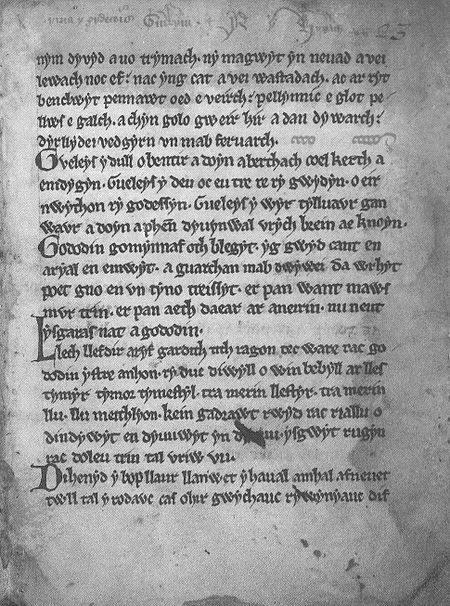 23
nym dyvyd a uo trymach. ny magwyt yn neuad a vei
lewach noc ef. nac yng cat a vei wastadach. ac ar ryt
benclwyt pennawt oed e veirch. pellynnic e glot pe
llws e galch. a chyn golo gweir hir a dan dywarch.
dyrllydei vedgyrn un mab feruarch.
Gueleys y dull o bentir a doyn aberthach coel kerth a
emdygyn. Gueleys y deu oc eu tre re ry gwydyn. o eir
nwython ry godessyn. Gueleys y wyr tylluavr gan
wavr a doyn a phen dyuynwal vrych brein ae knoyn.
Gododin gomynnaf oth blegyt. yg gwyd cant en
aryal en emwyt. a guarchan mab dwywei da wrhyt
poet gno en vn tyno treissyt. er pan want maws
mvr trin. er pan aeth daear ar aneirin. nu neut
ysgaras nat a gododin.
Llech llefdir aryf gardith tith ragon tec ware rac go
dodin ystre anhon. ry duc diwyll o win bebyll ar lles
tymyr tymor tymestyl. tra merin llestyr. tra merin
llu. llu meithlyon. kein gadrawt rwyd rac riallu o
dindywyt en dyuuwyt yn ysgwyt rugyn
rac doleu trin tal vriw vu.
Dihenyd y bop llaur llanwet y haual amhal afneuet
twll tal y rodawc cas ohir gwychauc rywynyauc dif